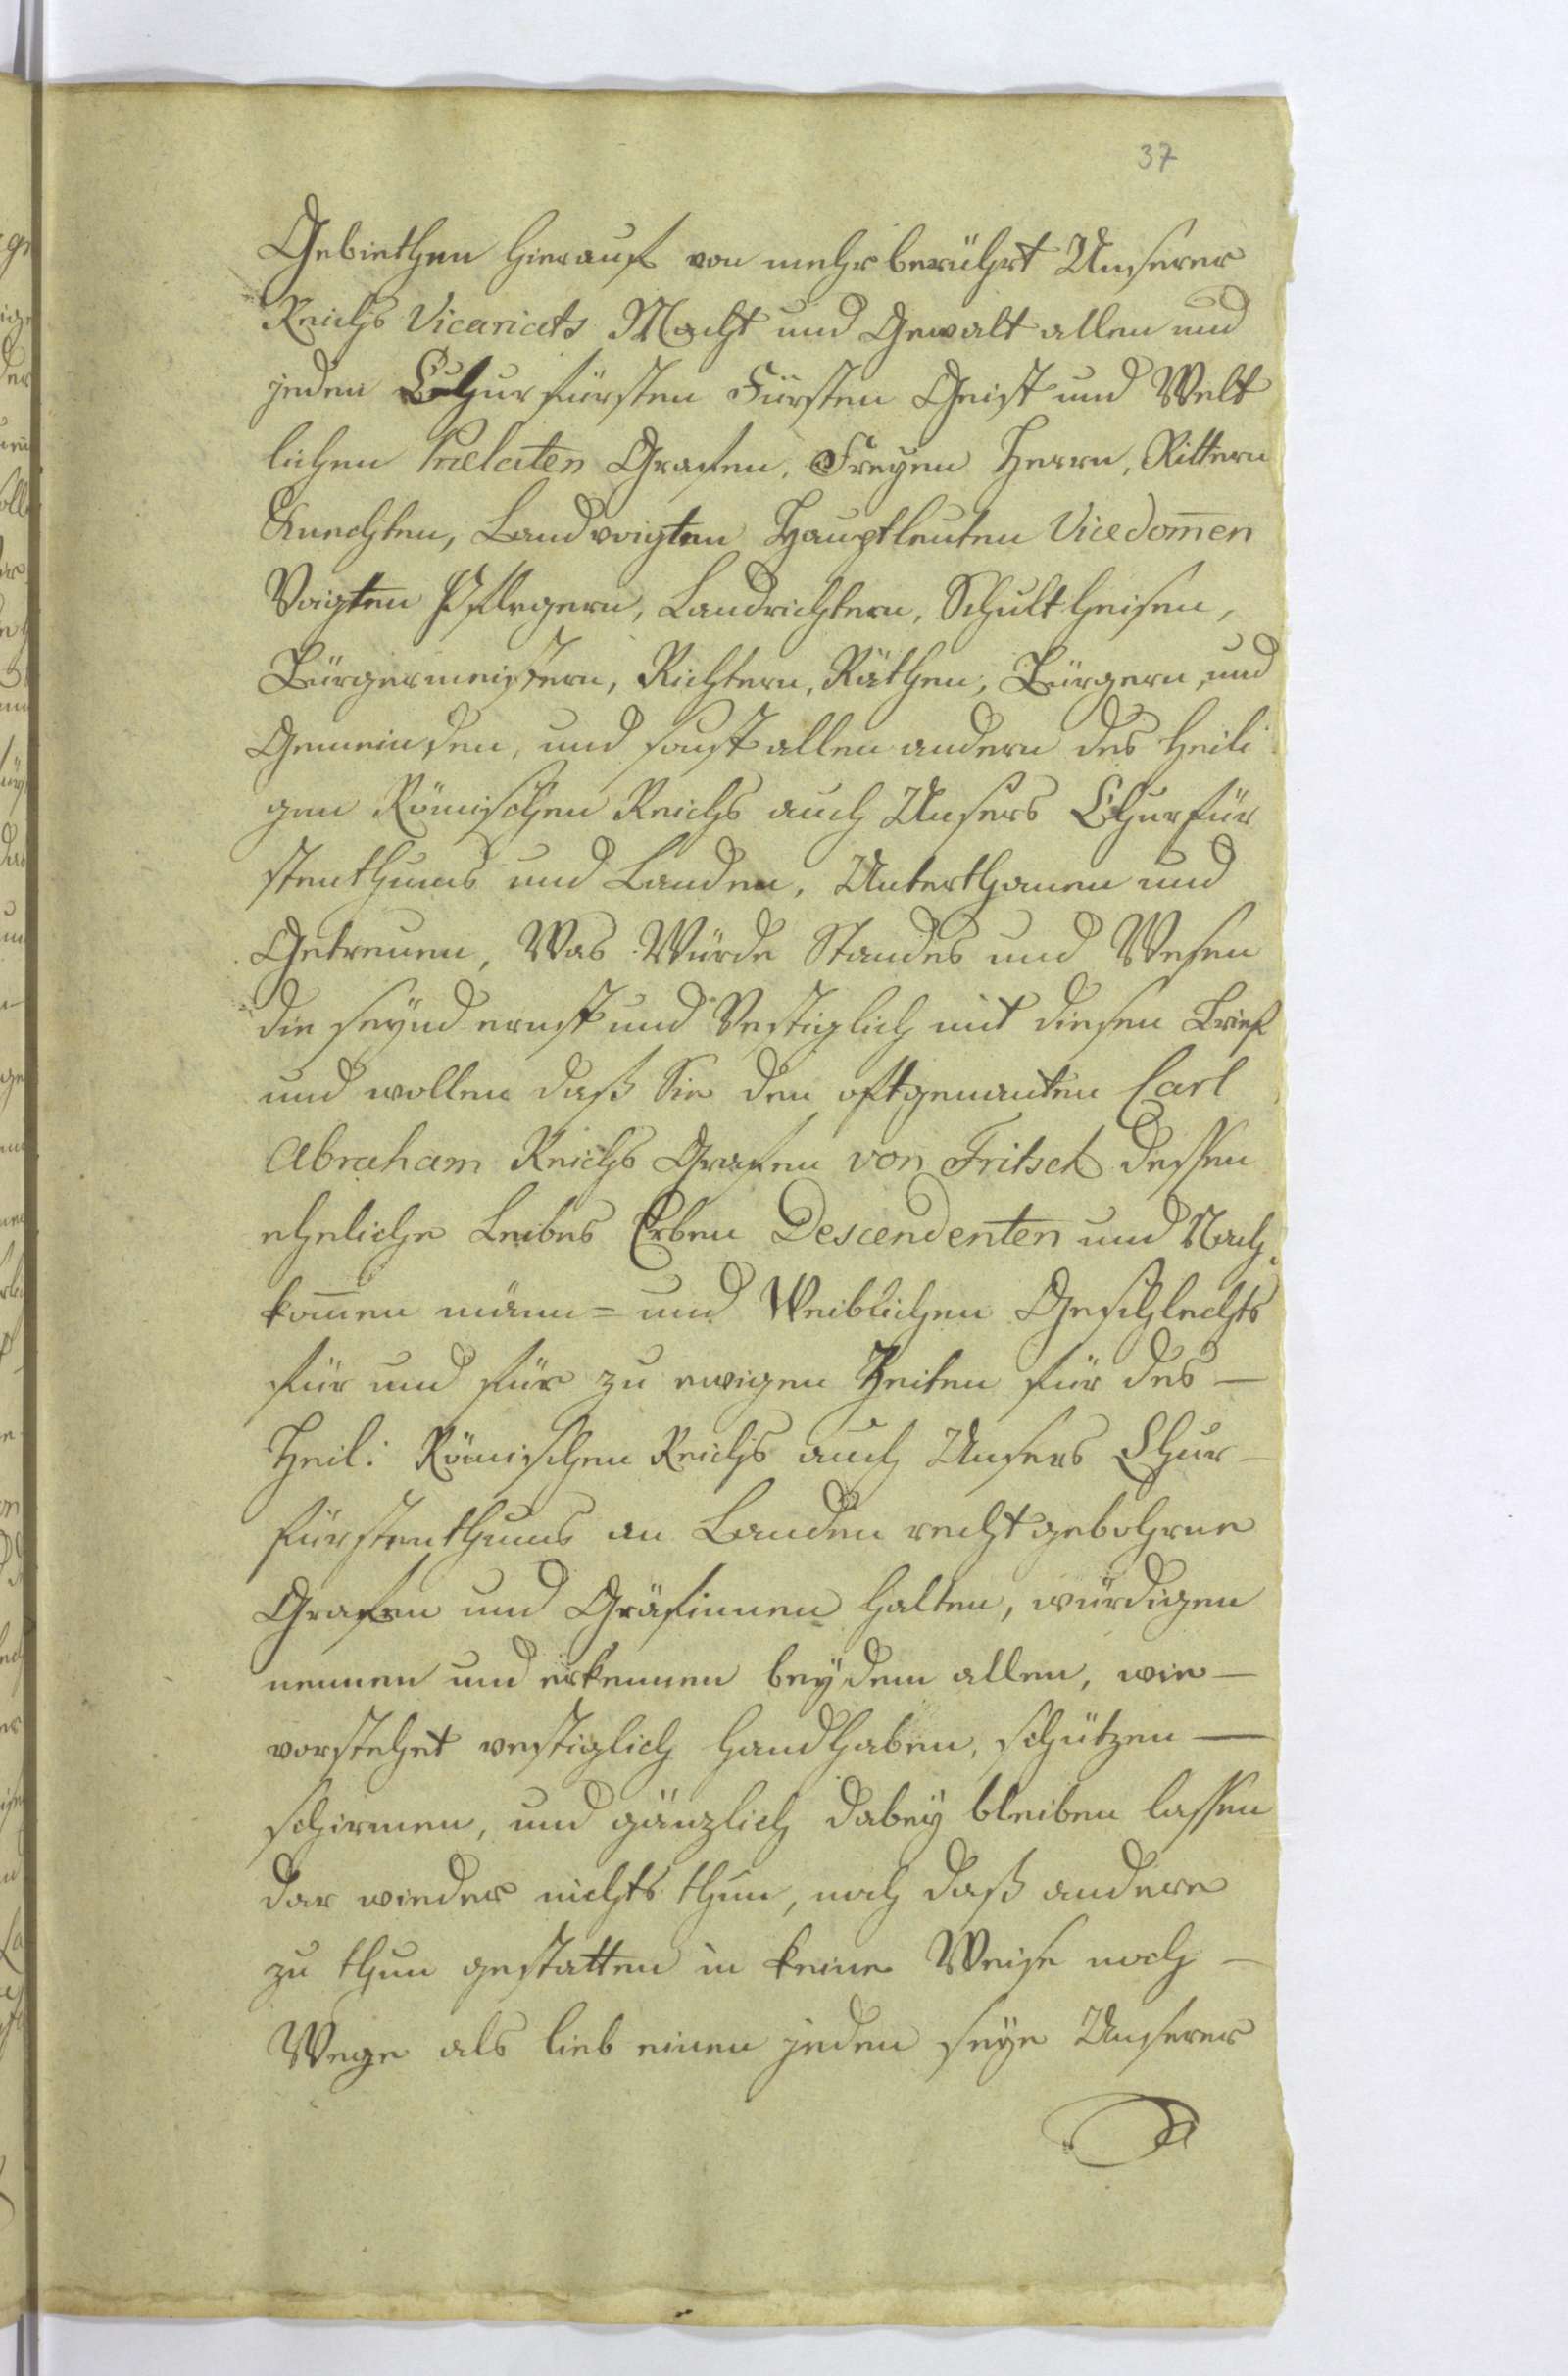 37
Gebiethen hierauf von mehrberührt Unserer
Reichs Vicariats Macht und Gewalt allen und
jeden Churfürsten Fürsten Geist und Welt
lichen Praelaten Grafen, Freyen Herrn, Rittern
Knechten, Landvoigten Hauptleuten Vicedom̄en
Voigten Pflegern, Landrichtern, Schultheisen,
Bürgermeistern, Richtern, Räthen, Bürgern, und
Gemeinden, und sonst allen andern des heili
gen Römischen Reichs auch Unsers Churfür
stenthums und Landen, Unterthanen und
Getreuen, Was Würde Standes und Wesen
die seynd ernst und Vestiglich mit diesen Brief
und wollen daß Sie den oftgenanten Carl
Abraham Reichs Grafen von Fritsch dessen
eheliche Leibes Erben Descendenten und Nach
kom̄en männ= und Weiblichen Geschlechts
für und für zu ewigen Zeiten für des –
Heil: Römischen Reichs auch Unsers Chur-
fürstenthums an Landen recht gebohrne
Grafen und Gräfinnen halten, würdigen
nennen und erkennen bey dem allen, wie –
vorstehet vestiglich handhaben, schützen —
schirmen, und gänzlich dabey bleiben lassen
dar wieder nichts thun, noch daß andere
zu thun gestatten in keine Weise noch –
Wege als lieb einen jeden seye Unserer